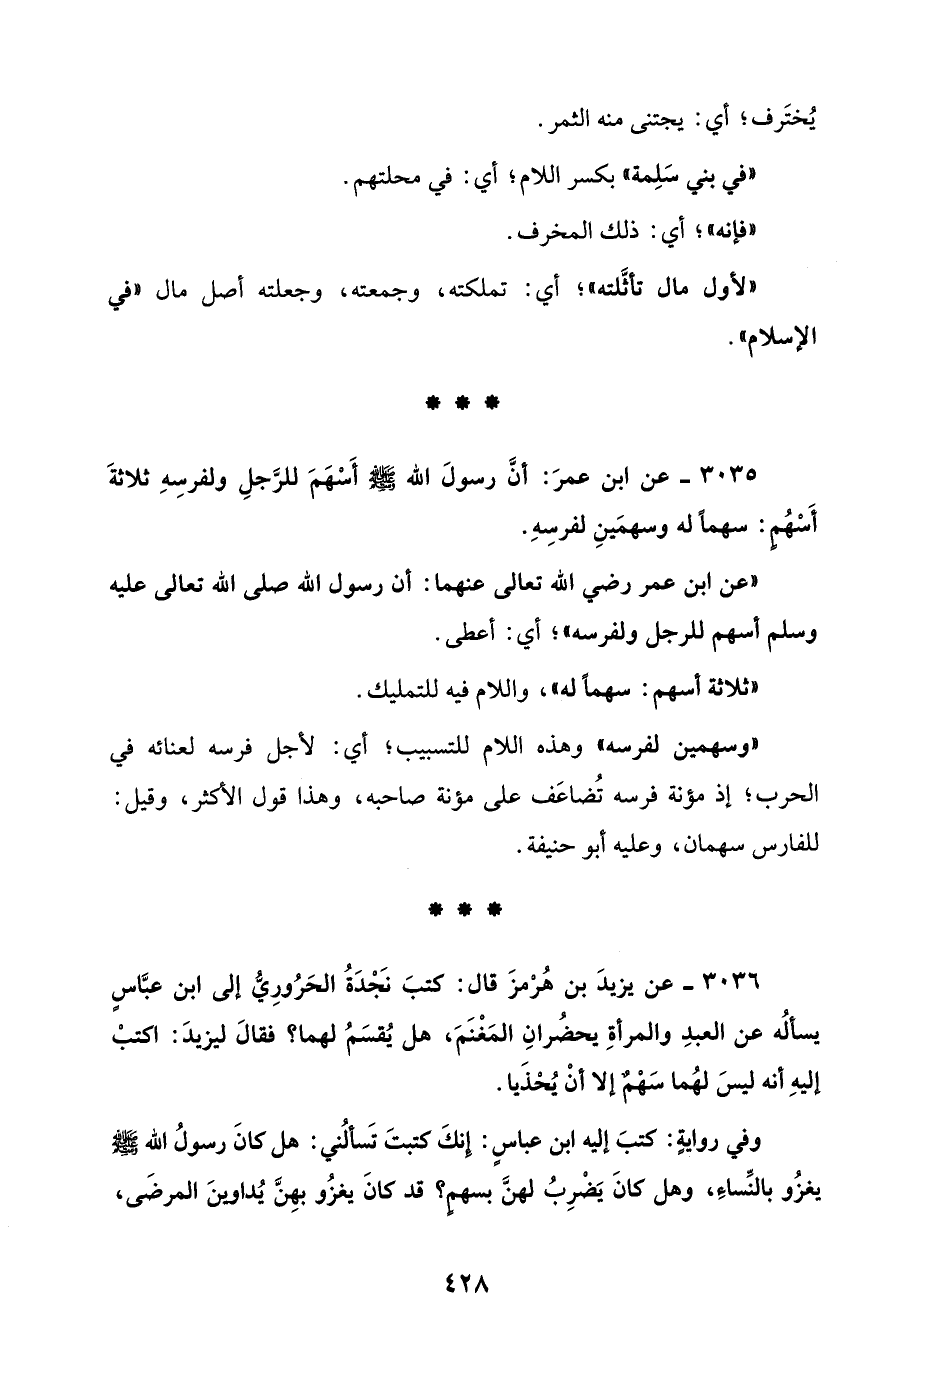 يُختَرف؛ أي: يجتنى منه الثمر.
«في بني سَلِمة» بكسر اللام؛ أي: في محلتهم.
«فإنه»؛ أي: ذلك المخرف.
«لأول مال تأثَّلته»؛ أي: تملكته، وجمعته، وجعلته أصل مال «في
الإسلام».
* * *
٣٠٣٥ - عن ابن عمرَ: أنَّ رسولَ الله ﷺ أَسْهَمَ للرَّجلِ ولفرسِهِ ثلاثةَ
أَسْهُمٍ: سهماً له وسهمَينِ لفرسِهِ.
«عن ابن عمر رضي الله تعالى عنهما: أن رسول الله صلى الله تعالى عليه
وسلم أسهم للرجل ولفرسه»؛ أي: أعطى.
«ثلاثة أسهم: سهماً له»، واللام فيه للتمليك.
«وسهمين لفرسه» وهذه اللام للتسبيب؛ أي: لأجل فرسه لعنائه في
الحرب؛ إذ مؤنة فرسه تُضاعَف على مؤنة صاحبه، وهذا قول الأكثر، وقيل:
للفارس سهمان، وعليه أبو حنيفة.
* * *
٣٠٣٦ - عن يزيدَ بن هُرْمزَ قال: كتبَ نَجْدَةُ الحَرُورِيُّ إلى ابن عبَّاسٍ
يسألُه عن العبدِ والمرأةِ يحضُرانِ المَغْنَمَ، هل يُقسَمُ لهما؟ فقالَ ليزيدَ: اكتبْ
إليهِ أنه ليسَ لهُما سَهْمٌ إلا أنْ يُحْذَيا.
وفي روايةٍ: كتبَ إليه ابن عباسٍ: إنكَ كتبتَ تَسألُني: هل كانَ رسولُ الله ﷺ
يغزُو بالنِّساءِ، وهل كانَ يَضْرِبُ لهنَّ بسهمٍ؟ قد كانَ يغزُو بهِنَّ يُداوينَ المرضَى،
٤٢٨